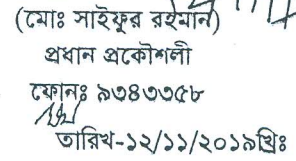 (মোঃ সাইফুর রহমান)
প্রধান প্রকৌশলী
ফোনঃ ৯৩৪৩৩৫৮
তারিখ-১২/১১/২০১৯খ্রিঃ